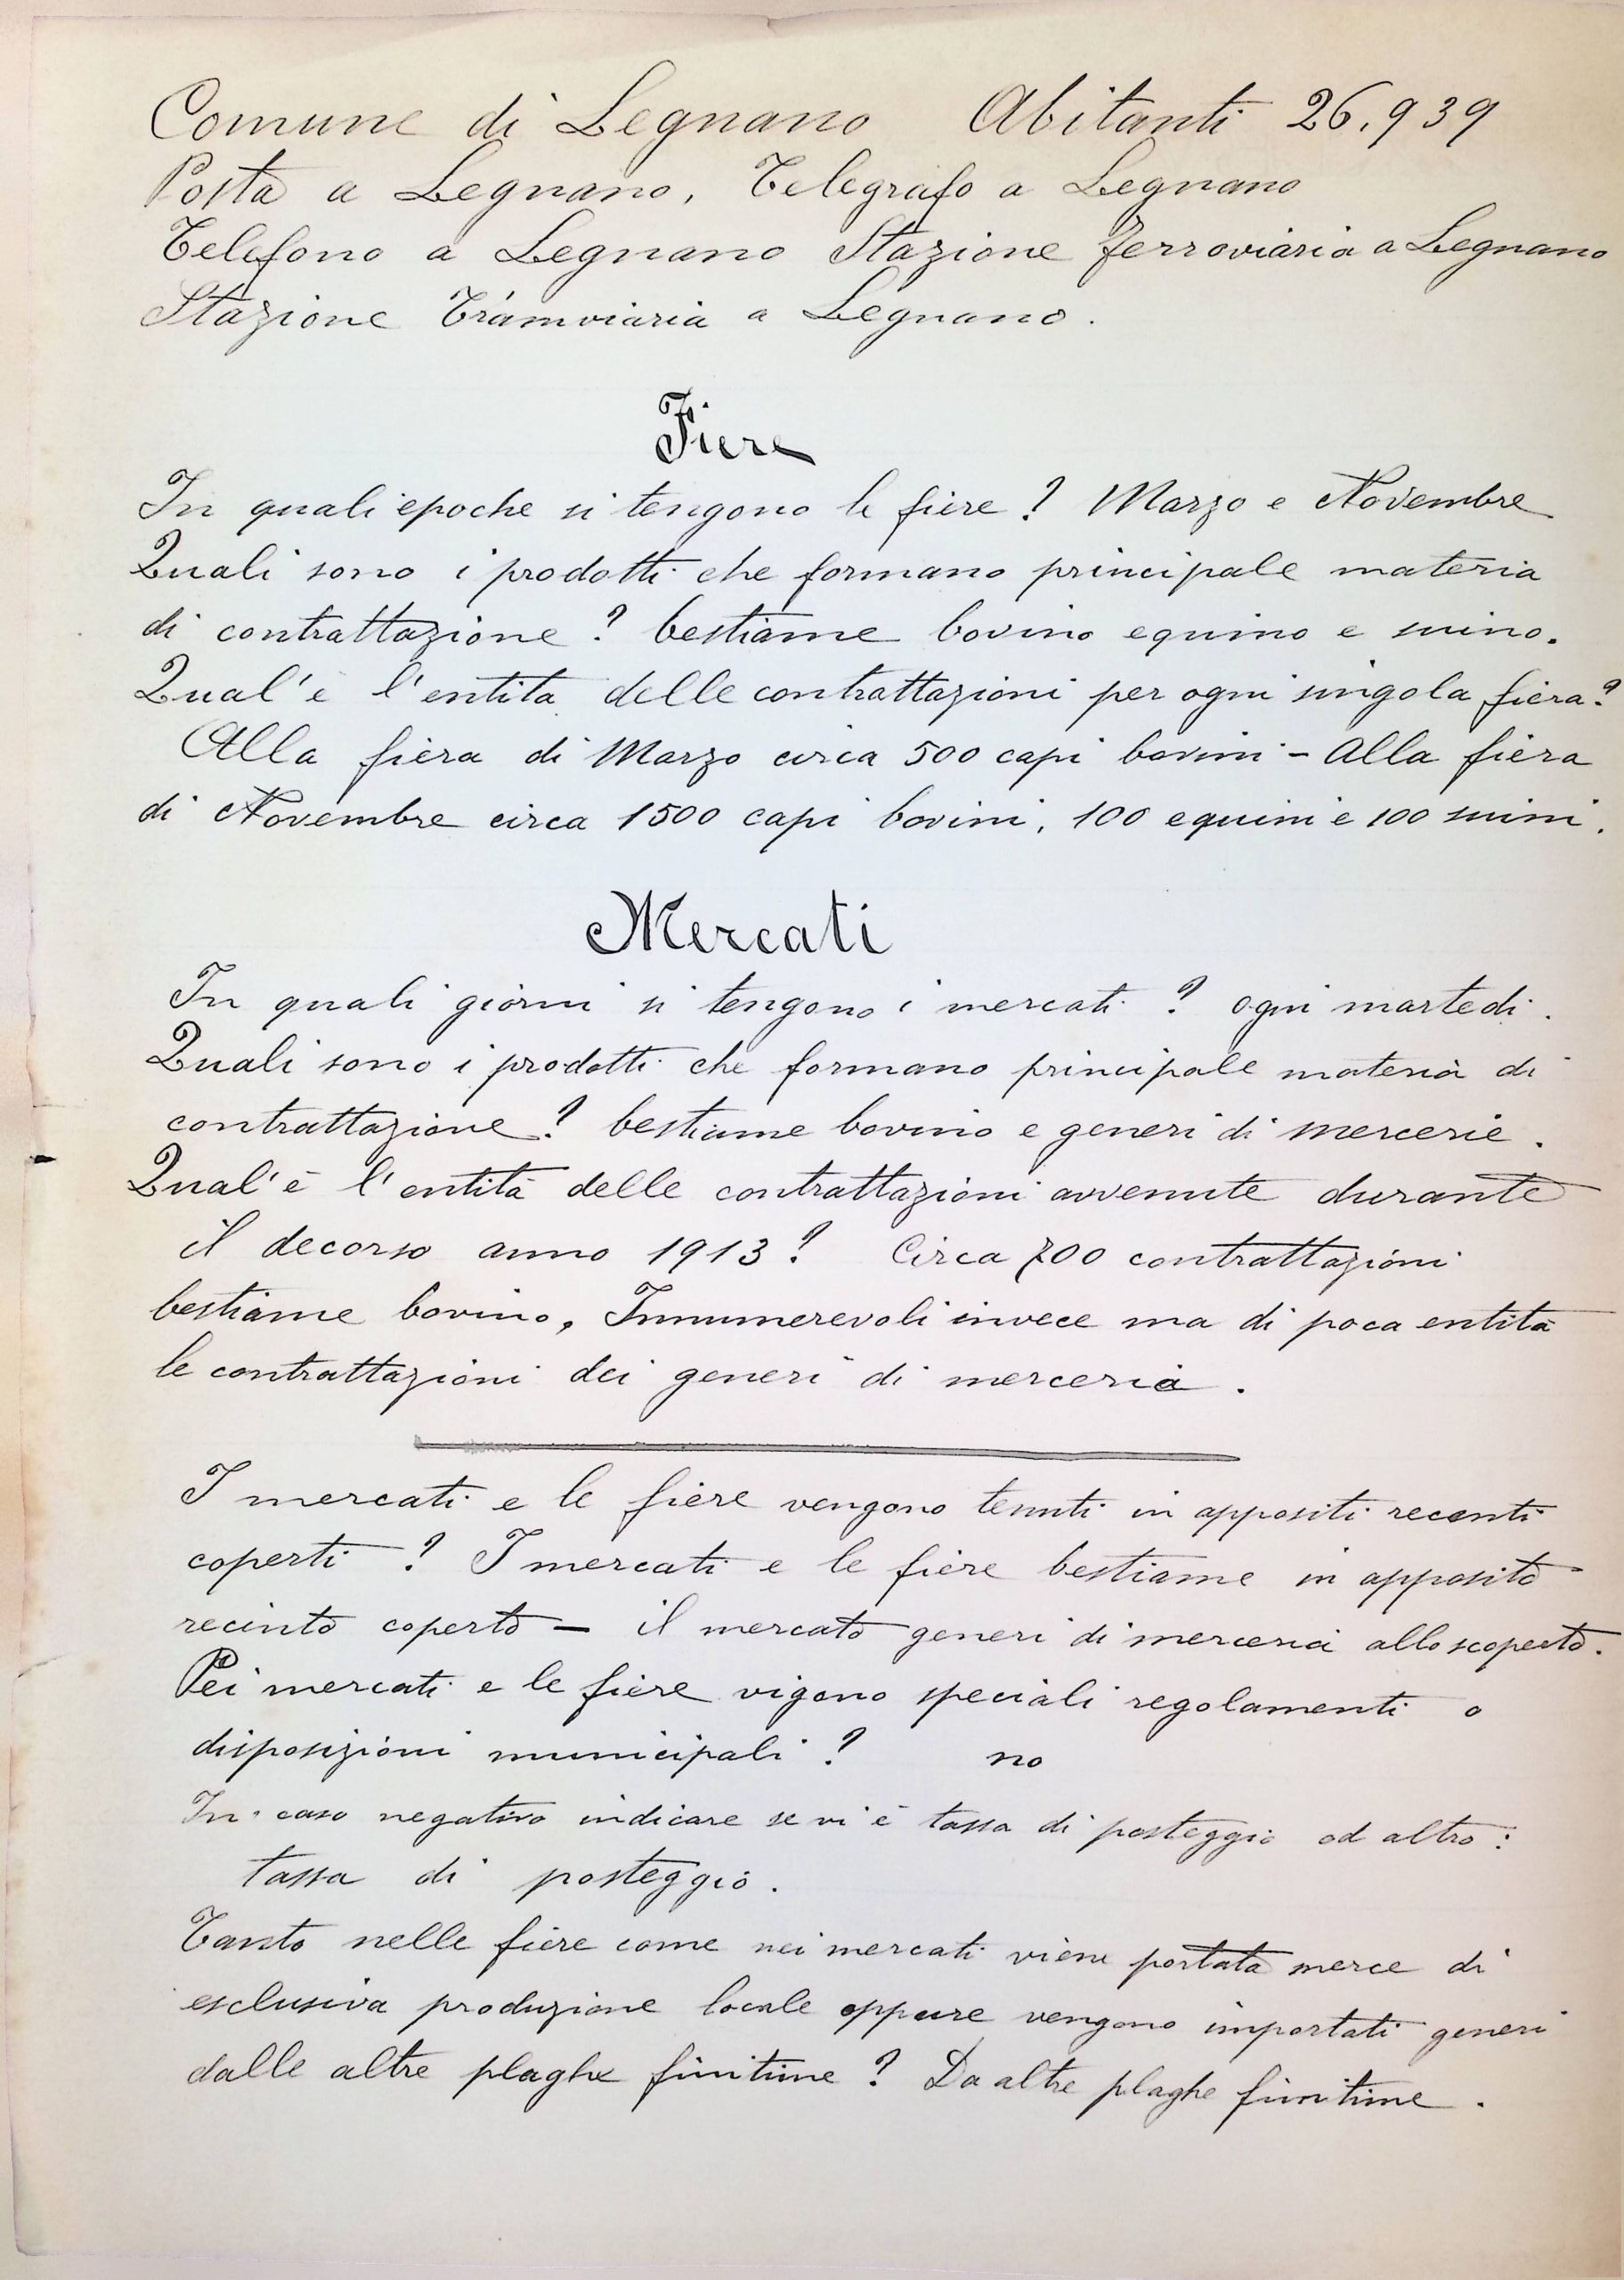 Comune di Legnano Abitanti 26.939
Posta a Legnano, Telegrafo a Legnano
Telefono a Legnano Stazione ferroviaria a Legnano
Stazione Tramviaria a Legnano.
Fiere
In quali epoche si tengono le fiere ? Marzo e Novembre
Quali sono i prodotti che formano principale materia
di contrattazione ? bestiame bovino equino e suino.
Qual'è l'entità delle contrattazioni per ogni singola fiera?
Alla fiera di Marzo circa 500 capi bovini - Alla fiera
di Novembre circa 1500 capi bovini, 100 equini e 100 suini.
Mercati
In quali giorni si tengono i mercati ? ogni martedi.
Quali sono i prodotti che formano principale materia di
contrattazione ? bestiame bovino e generi di mercerie.
Qual'è l'entità delle contrattazioni avvenute durante
il decorso anno 1913 ? Circa 700 contrattazioni
bestiame bovino, Innumerevoli invece ma di poca entità
le contrattazioni dei generi di merceria.
I mercati e le fiere vengono tenuti in appositi recenti
coperti ? I mercati e le fiere bestiame in apposito
recinto coperto - il mercato generi di merceria allo scoperto.
Pei mercati e le fiere vigono speciali regolamenti o
disposizioni municipali ? no
In caso negativo indicare se vi è tassa di posteggio od altro :
tassa di posteggio.
Tanto nelle fiere come nei mercati viene portata merce di
esclusiva produzione locale oppure vengono importati generi
dalle altre plaghe finitime ? Da altre plaghe finitime.